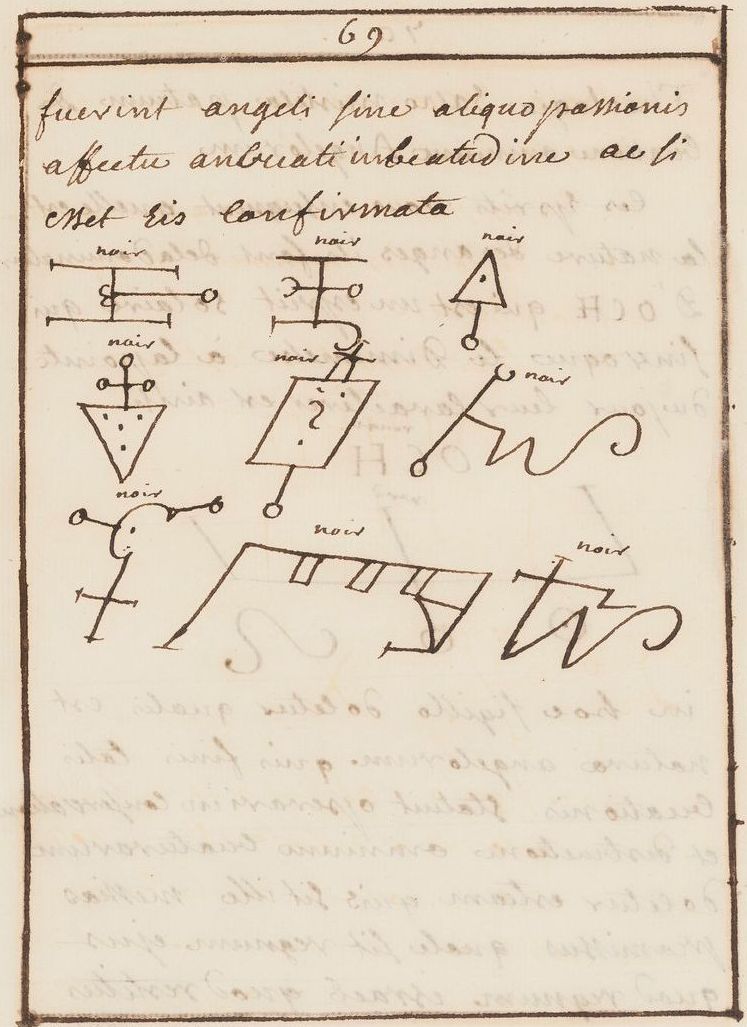 69
fuerint angeli sine aliquo passionis
affectu an creati in beatudine ac si
esset eis confirmata
noir noir noir
noir noir noir
noir
noir noir